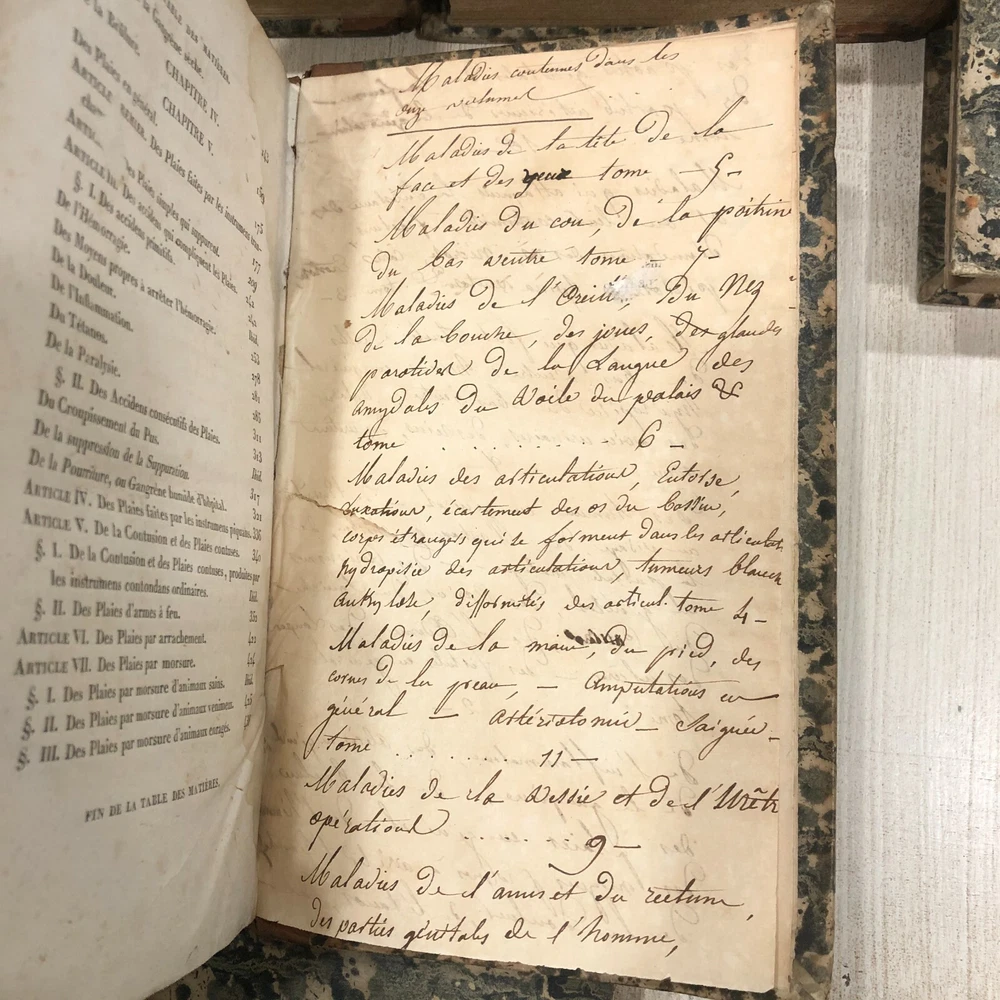 TABLE DES MATIÈRES.
la Gangrène sèche.
CHAPITRE IV.
la Brûlure.
CHAPITRE V.
Des Plaies en général.
ARTICLE Des Plaies faites par les instrumens
les Plaies simples qui suppurent.
ARTICLE III. Des accidens qui compliquent les Plaies.
§. I. Des accidens primitifs.
De l'Hémorragie.
Des Moyens propres à arrêter l'hémorragie.
De la Douleur.
De l'Inflammation.
Du Tétanos.
De la Paralysie.
§. II. Des Accidens consécutifs des Plaies.
Du Croupissement du Pus.
De la suppression de la Suppuration.
De la Pourriture, ou Gangrène humide d'hôpital.
ARTICLE IV. Des Plaies faites par les instrumens piquans. 336
ARTICLE V. De la Contusion et des Plaies contuses. 340
§. I. De la Contusion et des Plaies contuses, produites par
les instrumens contondans ordinaires. Ibid.
§. II. Des Plaies d'armes à feu.
ARTICLE VI. Des Plaies par arrachement.
ARTICLE VII. Des Plaies par morsure.
§. I. Des Plaies par morsure d'animaux sains. Ibid.
§. II. Des Plaies par morsure d'animaux venimeux.
§. III. Des Plaies par morsure d'animaux enragés.
FIN DE LA TABLE DES MATIÈRES.
Maladies contennes dans les
onze volumes
Maladies de la tête de la
face et des yeux tome - 5 -
Maladies du cou, de la poitrine
du bas ventre tome - 7 -
Maladies de l'Oreille, Du Nez -
de la bouche, des joues, des glandes
parotides de la Langue des
amygdales du Voile du palais &
tome . . . . . . . 6 -
Maladies des articulations, Entorse,
Luxations, écartement des os du bassin,
corps étrangers qui se forment dans les articulat.
hydropisie des articulations, tumeurs blanches
ankylose, difformités des articul. tome 4 -
Maladies de la main, du pied, des
cornes de la peau, - Amputations en
général - artériotomie - Saignée -
tome . . . . . . . 11 -
Maladies de la Vessie et de l'Urètr
opérations . . . . 9 -
Maladies de l'anus et du rectum,
des parties génitales de l'homme,